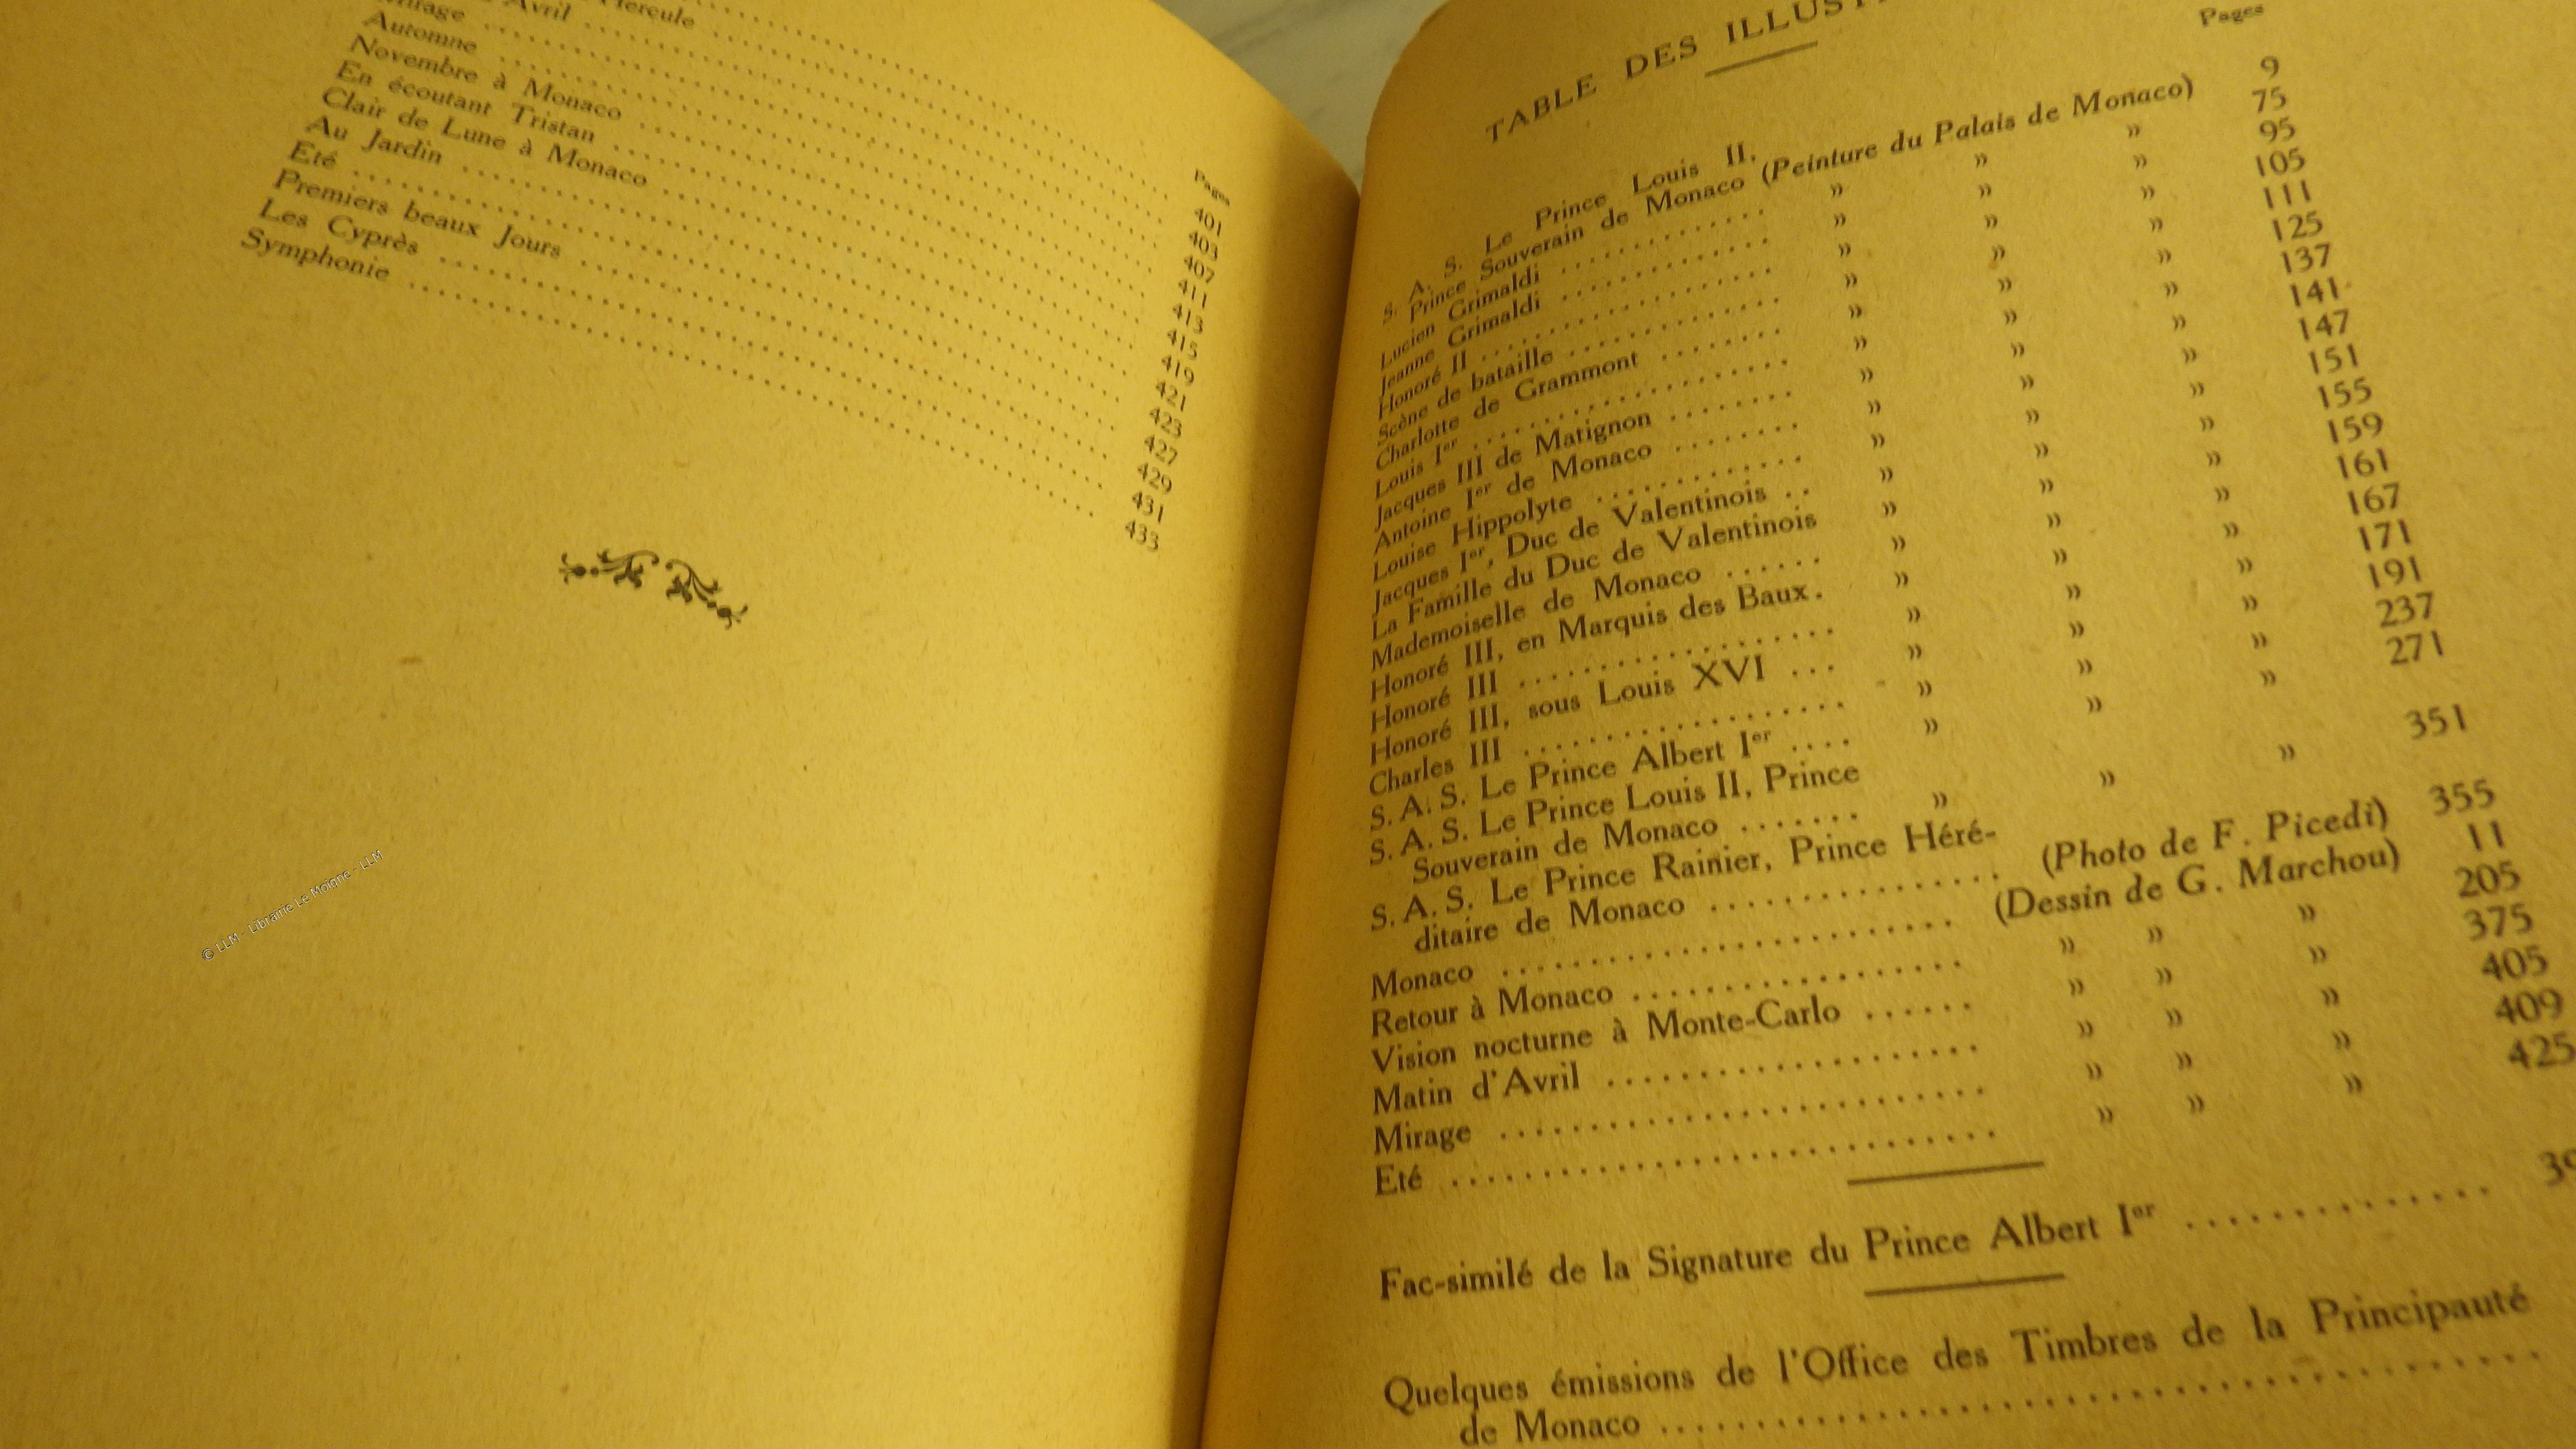 Hercule ..........
Avril ..........
Automne ..........
Novembre à Monaco ..........
En écoutant Tristan ..........
Clair de Lune à Monaco ..........
Au Jardin ..........
Eté ..........
Premiers beaux Jours ..........
Les Cyprès ..........
Symphonie ..........
Pages
401
403
407
411
413
415
419
421
423
427
429
431
433
© LLM - Librairie Le Moigne - LLM
TABLE DES
Pages
S. A. S. Le Prince Louis II,
Prince Souverain de Monaco (Peinture du Palais de Monaco) 9
Lucien Grimaldi .......... » » » 75
Jeanne Grimaldi .......... » » » 95
Honoré II .......... » » » 105
Scène de bataille .......... » » » 111
Charlotte de Grammont ........ » » » 125
Louis Ier .......... » » » 137
Jacques III de Matignon ........ » » » 141
Antoine Ier de Monaco ........ » » » 147
Louise Hippolyte .......... » » » 151
Jacques Ier, Duc de Valentinois .. » » » 155
La Famille du Duc de Valentinois » » » 159
Mademoiselle de Monaco ...... » » » 161
Honoré III, en Marquis des Baux. » » » 167
Honoré III .......... » » » 171
Honoré III, sous Louis XVI ... » » » 191
Charles III .......... » » » 237
S. A. S. Le Prince Albert Ier .... » » » 271
S. A. S. Le Prince Louis II, Prince
Souverain de Monaco ....... » » » 351
S. A. S. Le Prince Rainier, Prince Héré-
ditaire de Monaco .......... (Photo de F. Picedi) 355
Monaco .......... (Dessin de G. Marchou) 11
Retour à Monaco .......... » » » 205
Vision nocturne à Monte-Carlo ...... » » » 375
Matin d'Avril .......... » » » 405
Mirage .......... » » » 409
Eté .......... » » » 425
Fac-similé de la Signature du Prince Albert Ier ..........
Quelques émissions de l'Office des Timbres de la Principauté
de Monaco ..........